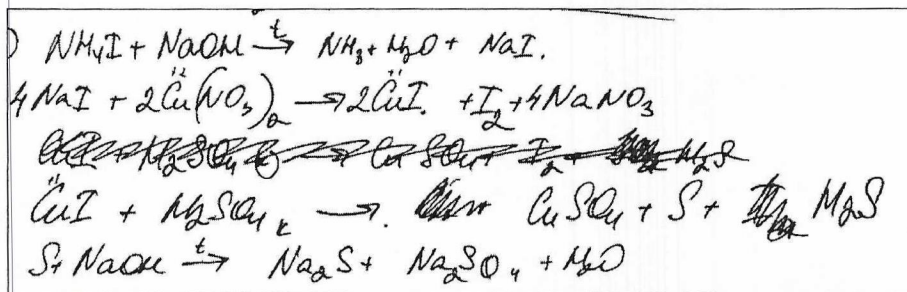 ) NH₄I + NaOH →ᵗ NH₃ + H₂O + NaI.
4NaI + 2Cü(NO₃)₂ → 2C̈uI. + I₂ + 4NaNO₃
C̈uI + H₂SO₄ к → CuSO₄ + S + H₂S
S + NaOH →ᵗ Na₂S + Na₂SO₄ + H₂O